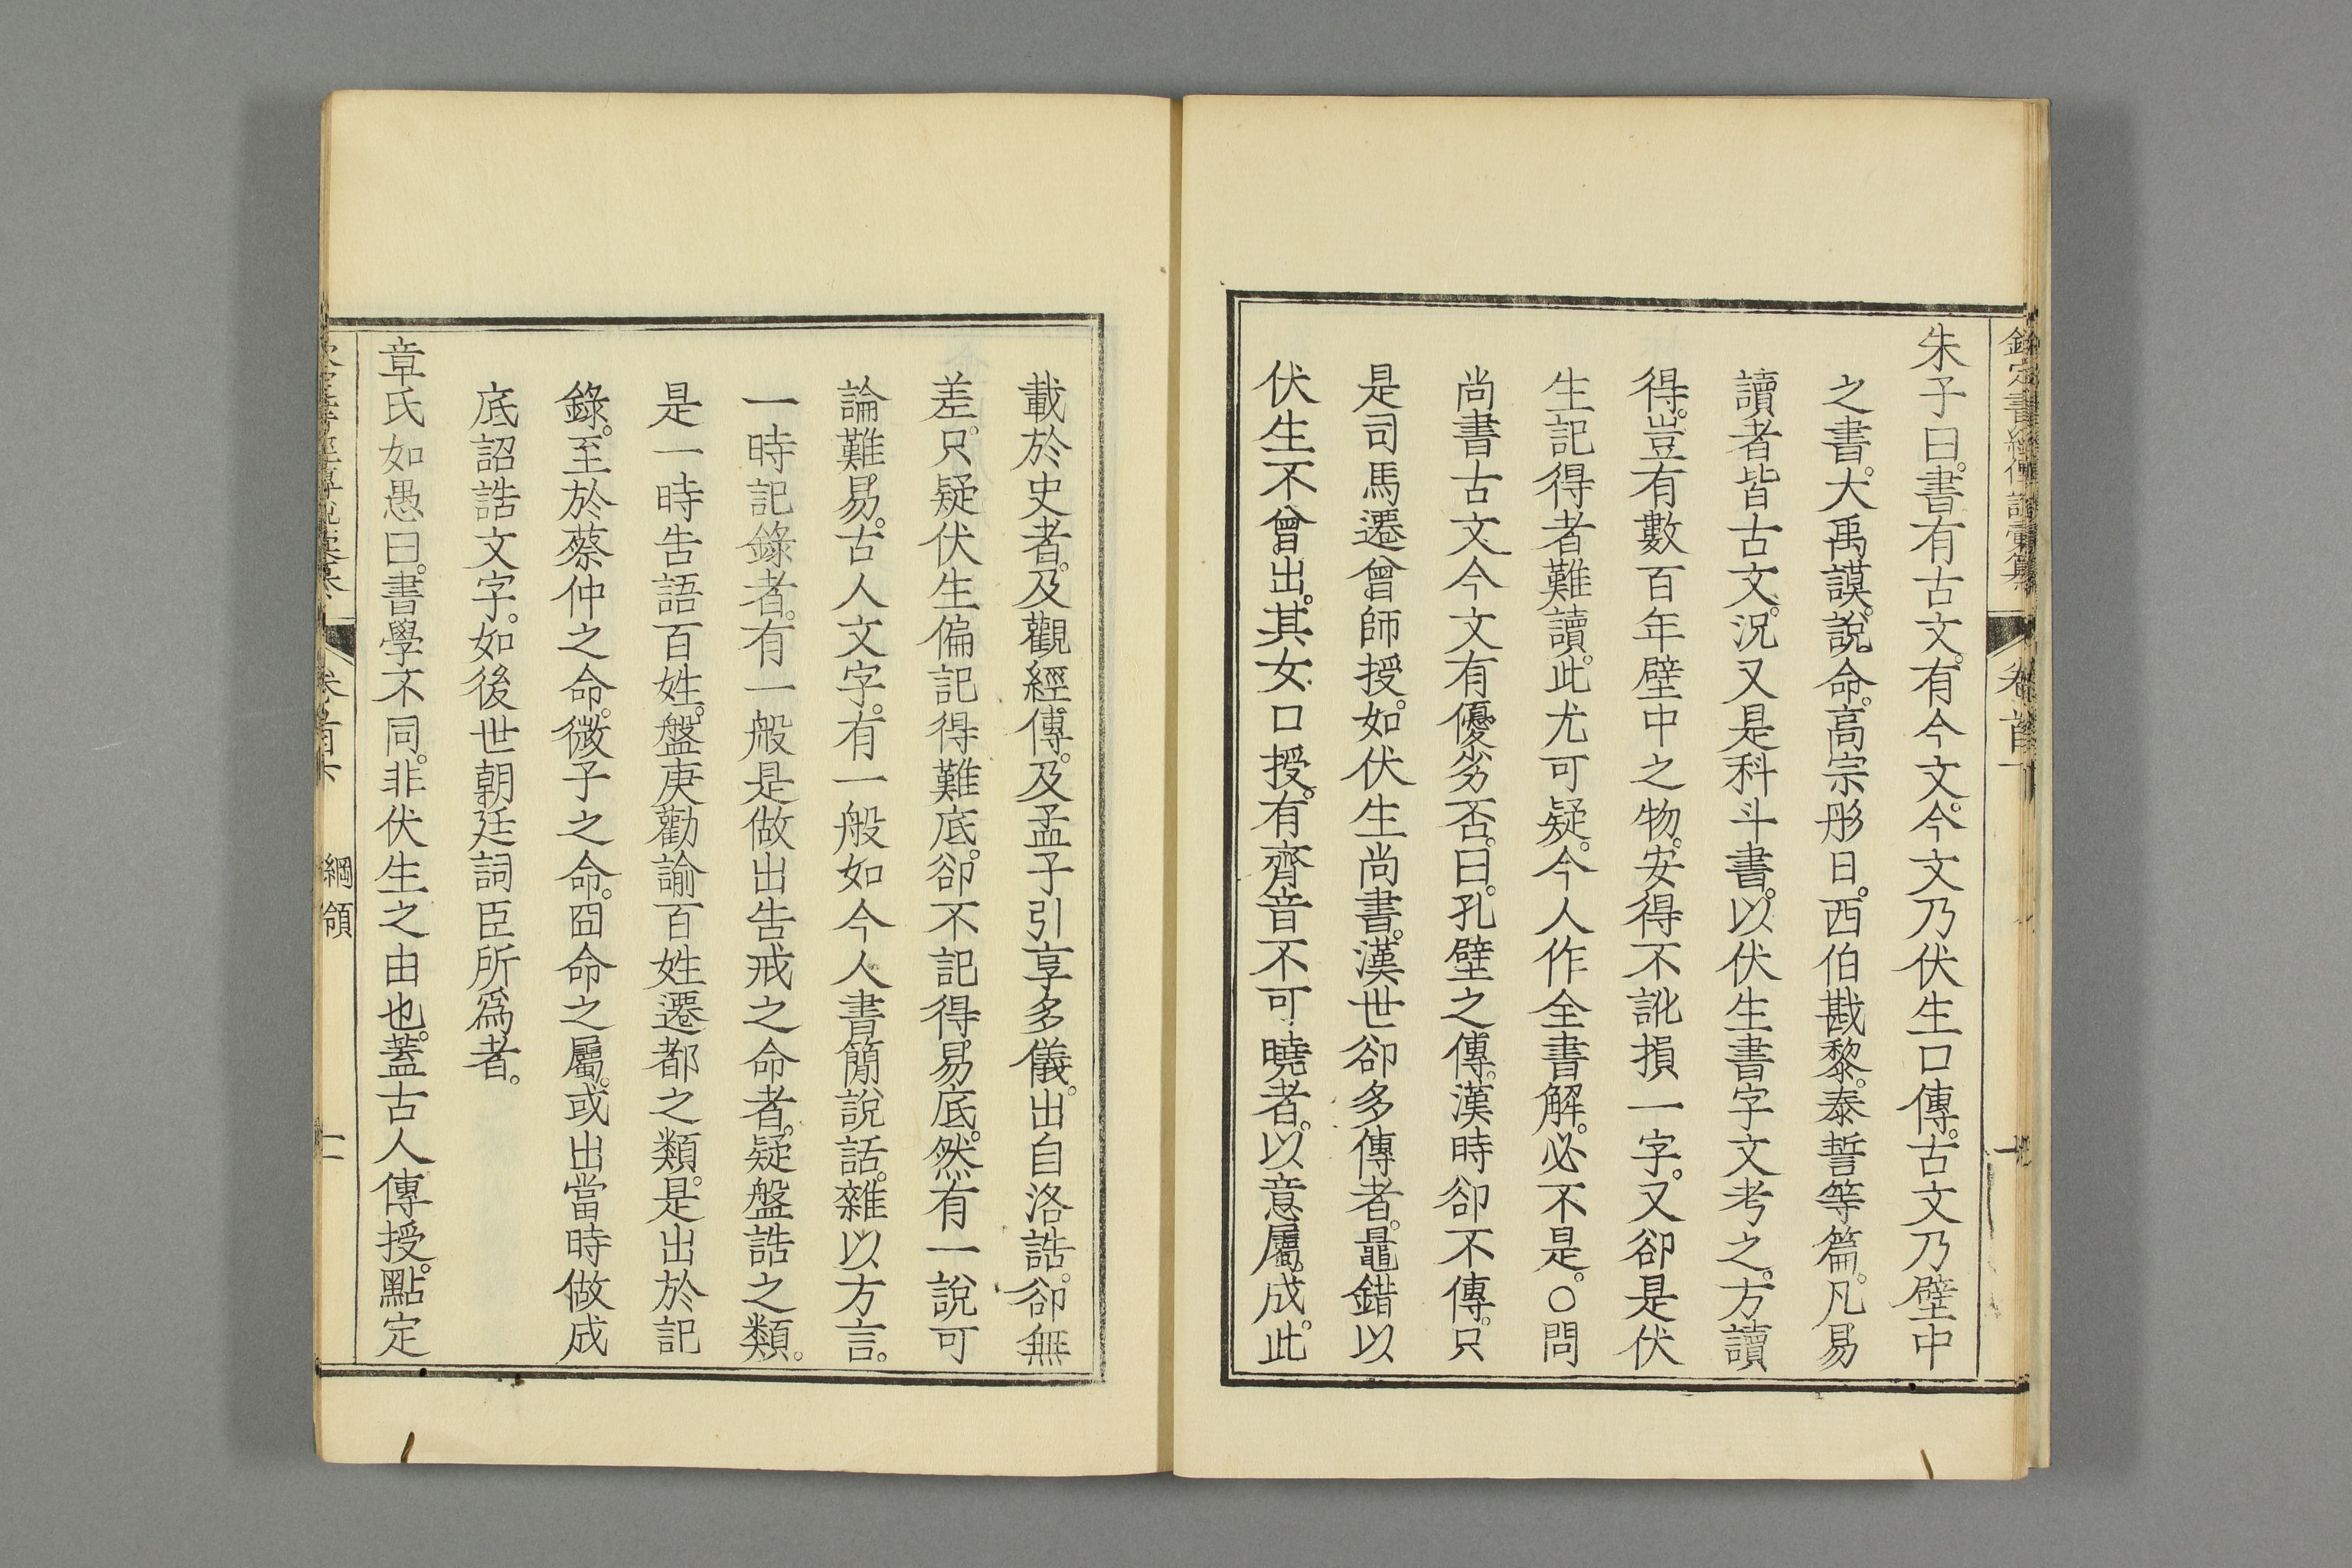 欽定書經傳說彙纂 卷首下
朱子曰。書有古文。有今文。今文乃伏生口傳。古文乃壁中
之書。大禹謨。說命。高宗肜日。西伯戡黎。泰誓等篇。凡易
讀者皆古文。況又是科斗書。以伏生書字文考之。方讀
得。豈有數百年壁中之物。安得不訛損一字。又卻是伏
生記得者難讀。此尤可疑。今人作全書解。必不是。〇問
尚書古文今文有優劣否。曰。孔壁之傳。漢時卻不傳。只
是司馬遷曾師授。如伏生尚書。漢世卻多傳者。鼂錯以
伏生不曾出。其女口授。有齊音不可曉者。以意屬成。此
載於史者。及觀經傳。及孟子引享多儀。出自洛誥。卻無
差。只疑伏生偏記得難底。卻不記得易底。然有一說可
論難易。古人文字。有一般如今人書簡說話。雜以方言。
一時記錄者。有一般是做出告戒之命者。疑盤誥之類。
是一時告語百姓。盤庚勸諭百姓遷都之類。是出於記
錄。至於蔡仲之命。微子之命。冏命之屬。或出當時做成
底詔誥文字。如後世朝廷詞臣所爲者。
章氏如愚曰。書學不同。非伏生之由也。蓋古人傳授。點定
卷首下 綱領